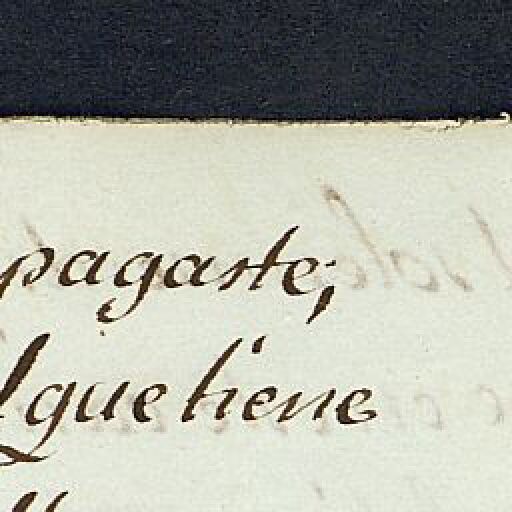 pagaste;
que tiene